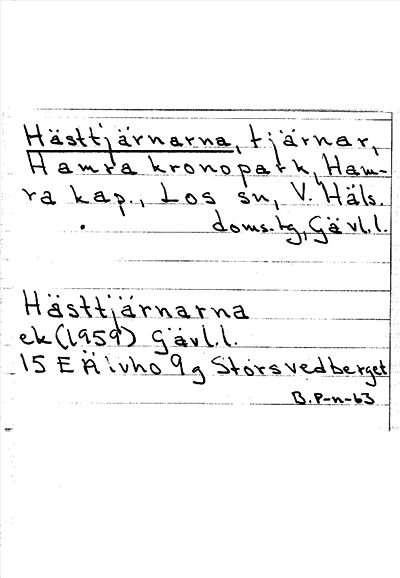 Hästtjärnarna, tjärnar,
Hamra kronopark, Ham-
ra kap., Los sn, V. Häls.
doms.tg, Gävl.l.
Hästtjärnarna
ek (1959) Gävl.l.
15 E Älvho 9g Storsvedberget
B.P-n-63